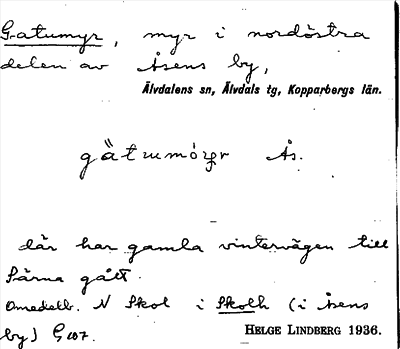 Gatumyr, myr i nordöstra
delen av Åsens by,
Älvdalens sn, Älvdals tg, Kopparbergs län.
Ås.
där har gamla vintervägen till
Särna gått.
Omedelb. N Skol i Skolh (i Åsens
by) G 107.
HELGE LINDBERG 1936.